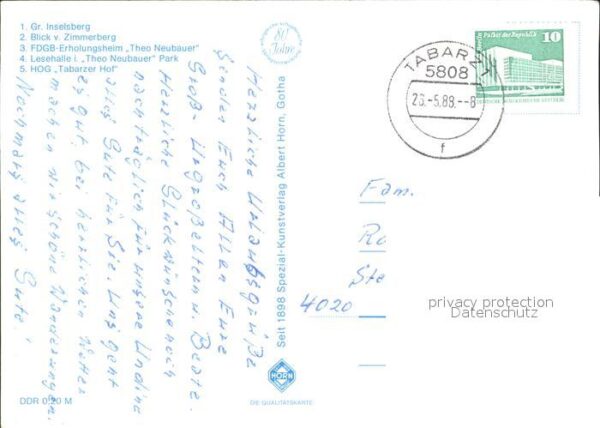 1. Gr. Inselsberg
2. Blick v. Zimmerberg
3. FDGB-Erholungsheim „Theo Neubauer"
4. Lesehalle i. „Theo Neubauer" Park
5. HOG „Tabarzer Hof"
80 Jahre
Berlin Palast der Republik
10
DEUTSCHE DEMOKRATISCHE REPUBLIK
TABARZ 1
5808
26.-5.89.--8
f
Herzliche Urlaubsgrüße
senden Euch Allen Eure
Groß- Urgroßeltern u. Beate.
Herzliche Glückwünsche noch
nachträglich für unsere Undine
alles Gute für Sie. Uns geht
es gut, bei herrlichen Wetter
machen wir schöne Wanderungen.
Nochmals alles Gute!
Seit 1898 Spezial-Kunstverlag Albert Horn, Gotha
Fam.
Ro
Ste
4020
privacy protection
Datenschutz
HORN
DIE QUALITÄTSKARTE
DDR 0,20 M